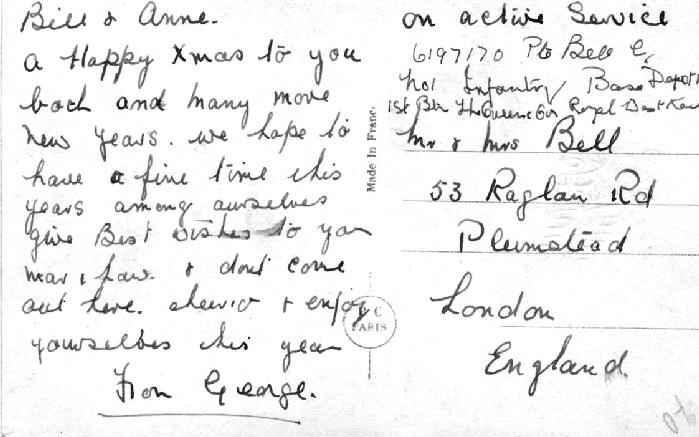 Bill & Anne.
a Happy Xmas to you
both and many more
new years. we hope to
have a fine time this
years among ourselves
give Best wishes to you
mar & paw. & dont come
out here. cheerio & enjoy
yourselves this year
From George.
Made In France
PARIS
on active Service
6197170 Pte Bell G.
No1 Infantry Base Depot
1st Btn The Queens Own Royal West Kent
Mr & Mrs Bell
53 Raglan Rd
Plumstead
London
England.